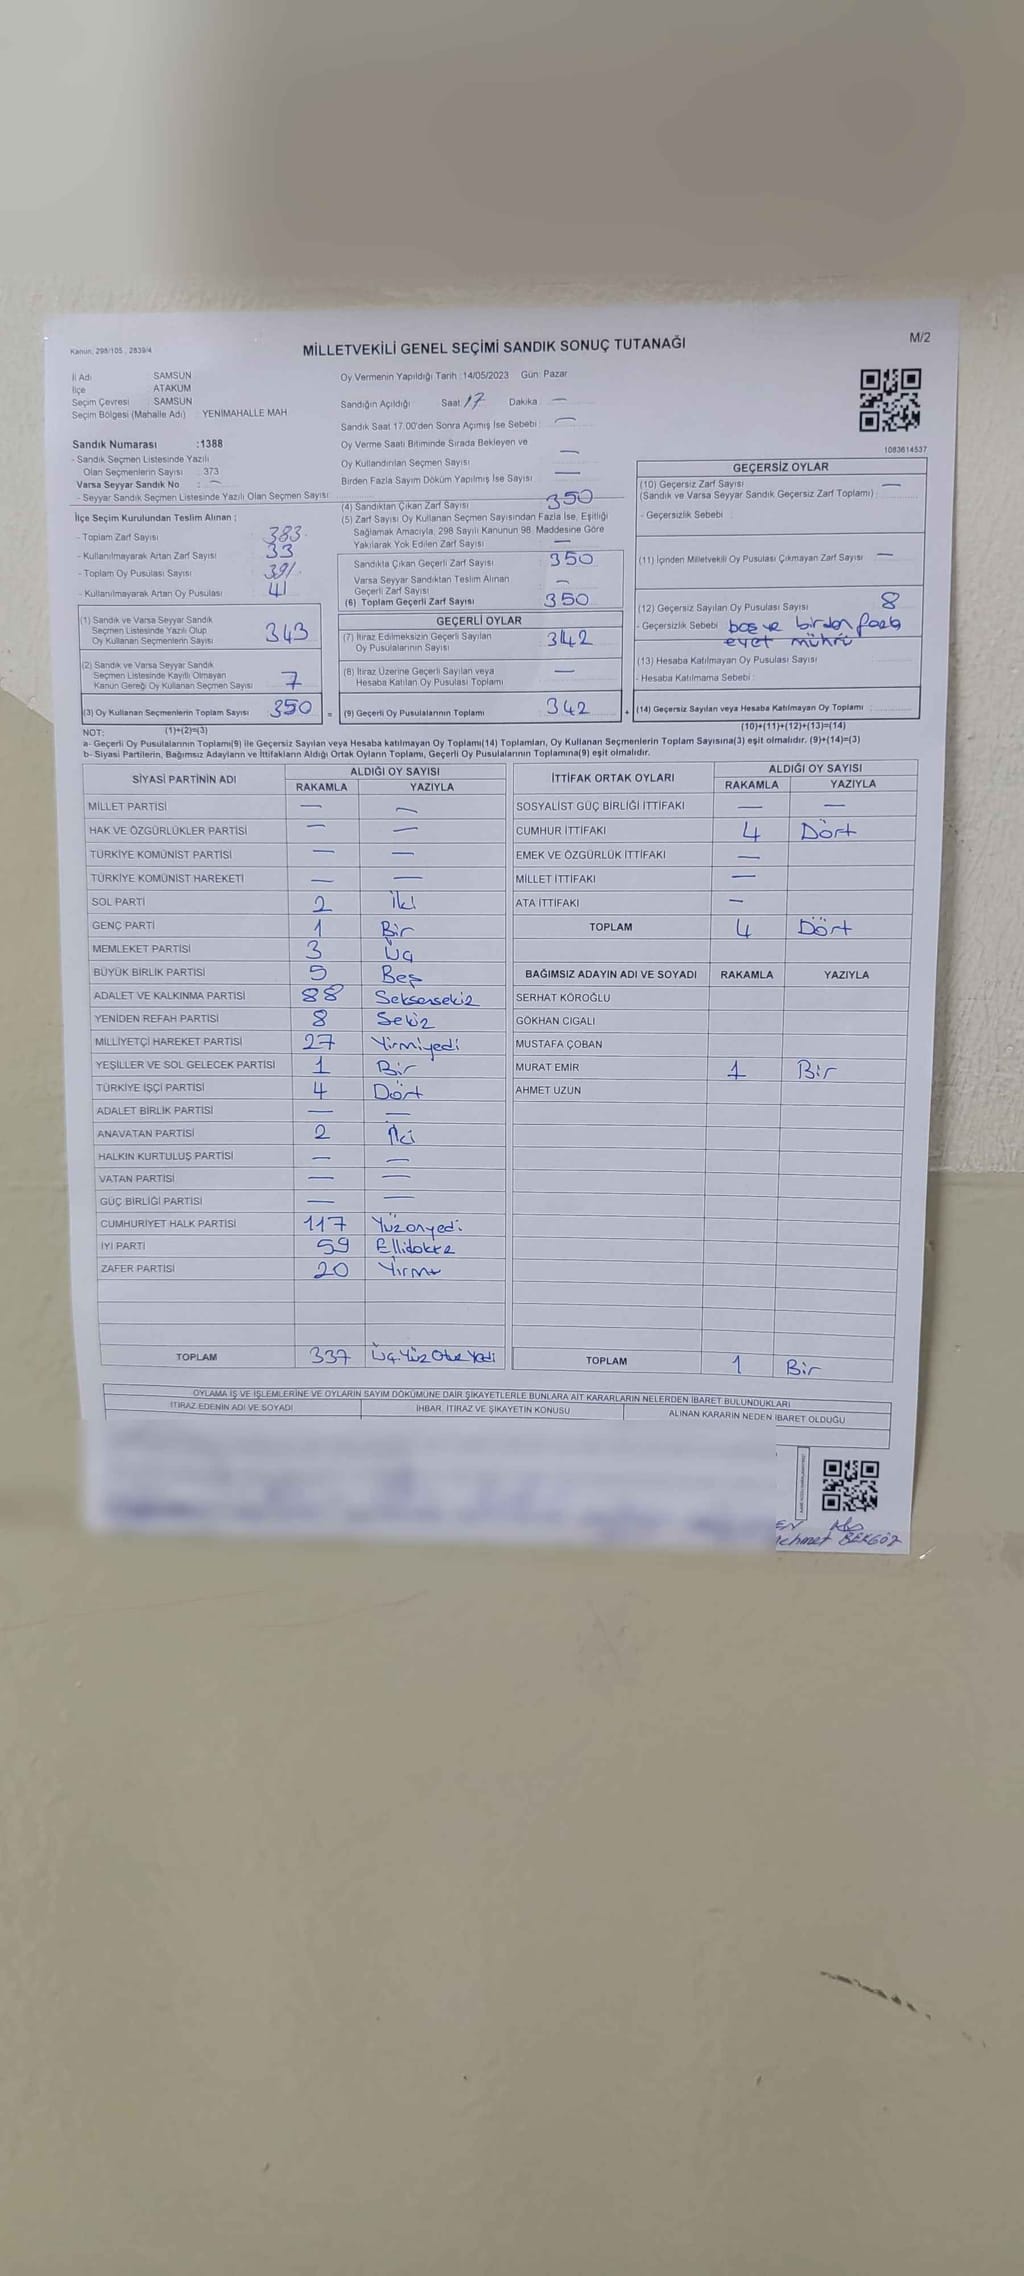 Kanun: 298/105 , 2839/4
MİLLETVEKİLİ GENEL SEÇİMİ SANDIK SONUÇ TUTANAĞI
M/2
İl Adı SAMSUN
İlçe ATAKUM
Seçim Çevresi : SAMSUN
Seçim Bölgesi (Mahalle Adı) : YENİMAHALLE MAH
Sandık Numarası :1388
- Sandık Seçmen Listesinde Yazılı
Olan Seçmenlerin Sayısı : 373
Varsa Seyyar Sandık No : —
- Seyyar Sandık Seçmen Listesinde Yazılı Olan Seçmen Sayısı:
İlçe Seçim Kurulundan Teslim Alınan ;
- Toplam Zarf Sayısı 383
- Kullanılmayarak Artan Zarf Sayısı 33
- Toplam Oy Pusulası Sayısı 391
- Kullanılmayarak Artan Oy Pusulası 41
(1) Sandık ve Varsa Seyyar Sandık
Seçmen Listesinde Yazılı Olup
Oy Kullanan Seçmenlerin Sayısı 343
(2) Sandık ve Varsa Seyyar Sandık
Seçmen Listesinde Kayıtlı Olmayan
Kanun Gereği Oy Kullanan Seçmen Sayısı 7
(3) Oy Kullanan Seçmenlerin Toplam Sayısı 350
(1)+(2)=(3)
Oy Vermenin Yapıldığı Tarih :14/05/2023 Gün: Pazar
Sandığın Açıldığı Saat 17 Dakika : —
Sandık Saat 17.00'den Sonra Açımış İse Sebebi : —
Oy Verme Saati Bitiminde Sırada Bekleyen ve
Oy Kullandırılan Seçmen Sayısı —
Birden Fazla Sayım Döküm Yapılmış İse Sayısı —
(4) Sandıktan Çıkan Zarf Sayısı 350
(5) Zarf Sayısı Oy Kullanan Seçmen Sayısından Fazla İse, Eşitliği
Sağlamak Amacıyla, 298 Sayılı Kanunun 98. Maddesine Göre
Yakılarak Yok Edilen Zarf Sayısı —
Sandıkla Çıkan Geçerli Zarf Sayısı 350
Varsa Seyyar Sandıktan Teslim Alınan
Geçerli Zarf Sayısı —
(6) Toplam Geçerli Zarf Sayısı 350
GEÇERLİ OYLAR
(7) İtiraz Edilmeksizin Geçerli Sayılan
Oy Pusulalarının Sayısı 342
(8) İtiraz Üzerine Geçerli Sayılan veya
Hesaba Katılan Oy Pusulası Toplamı —
= (9) Geçerli Oy Pusulalarının Toplamı 342 +
1083614537
GEÇERSİZ OYLAR
(10) Geçersiz Zarf Sayısı
(Sandık ve Varsa Seyyar Sandık Geçersiz Zarf Toplamı) : —
- Geçersizlik Sebebi :
(11) İçinden Milletvekili Oy Pusulası Çıkmayan Zarf Sayısı —
(12) Geçersiz Sayılan Oy Pusulası Sayısı 8
- Geçersizlik Sebebi : boş ve birden fazla
evet mührü
(13) Hesaba Katılmayan Oy Pusulası Sayısı
- Hesaba Katılmama Sebebi :
(14) Geçersiz Sayılan veya Hesaba Katılmayan Oy Toplamı :
(10)+(11)+(12)+(13)=(14)
NOT:
a- Geçerli Oy Pusulalarının Toplamı(9) ile Geçersiz Sayılan veya Hesaba katılmayan Oy Toplamı(14) Toplamları, Oy Kullanan Seçmenlerin Toplam Sayısına(3) eşit olmalıdır. (9)+(14)=(3)
b- Siyasi Partilerin, Bağımsız Adayların ve İttifakların Aldığı Ortak Oyların Toplamı, Geçerli Oy Pusulalarının Toplamına(9) eşit olmalıdır.
SİYASİ PARTİNİN ADI ALDIĞI OY SAYISI
RAKAMLA YAZIYLA
MİLLET PARTİSİ — —
HAK VE ÖZGÜRLÜKLER PARTİSİ — —
TÜRKİYE KOMÜNİST PARTİSİ — —
TÜRKİYE KOMÜNİST HAREKETİ — —
SOL PARTİ 2 İki
GENÇ PARTİ 1 Bir
MEMLEKET PARTİSİ 3 Üç
BÜYÜK BİRLİK PARTİSİ 5 Beş
ADALET VE KALKINMA PARTİSİ 88 Seksensekiz
YENİDEN REFAH PARTİSİ 8 Sekiz
MİLLİYETÇİ HAREKET PARTİSİ 27 Yirmiyedi
YEŞİLLER VE SOL GELECEK PARTİSİ 1 Bir
TÜRKİYE İŞÇİ PARTİSİ 4 Dört
ADALET BİRLİK PARTİSİ — —
ANAVATAN PARTİSİ 2 İki
HALKIN KURTULUŞ PARTİSİ — —
VATAN PARTİSİ — —
GÜÇ BİRLİĞİ PARTİSİ — —
CUMHURİYET HALK PARTİSİ 117 Yüzonyedi
İYİ PARTİ 59 Ellidokuz
ZAFER PARTİSİ 20 Yirmi
TOPLAM 337 Üç Yüz Otuz Yedi
İTTİFAK ORTAK OYLARI ALDIĞI OY SAYISI
RAKAMLA YAZIYLA
SOSYALİST GÜÇ BİRLİĞİ İTTİFAKI — —
CUMHUR İTTİFAKI 4 Dört
EMEK VE ÖZGÜRLÜK İTTİFAKI —
MİLLET İTTİFAKI —
ATA İTTİFAKI —
TOPLAM 4 Dört
BAĞIMSIZ ADAYIN ADI VE SOYADI RAKAMLA YAZIYLA
SERHAT KÖROĞLU
GÖKHAN CIGALI
MUSTAFA ÇOBAN
MURAT EMİR 1 Bir
AHMET UZUN
TOPLAM 1 Bir
OYLAMA İŞ VE İŞLEMLERİNE VE OYLARIN SAYIM DÖKÜMÜNE DAİR ŞİKAYETLERLE BUNLARA AİT KARARLARIN NELERDEN İBARET BULUNDUKLARI
İTİRAZ EDENİN ADI VE SOYADI İHBAR, İTİRAZ VE ŞİKAYETİN KONUSU ALINAN KARARIN NEDEN İBARET OLDUĞU
BEKGÖZ